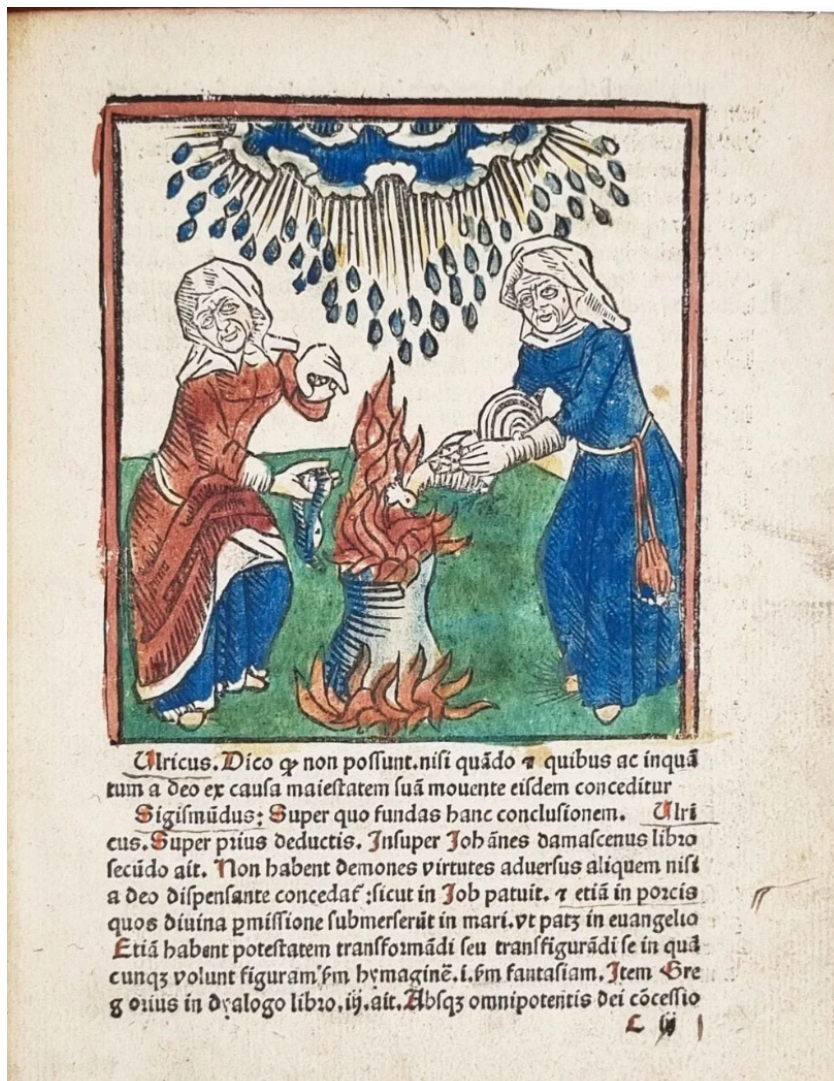 Ulricus. Dico ꝙ non possunt. nisi quādo ⁊ quibus ac inquā
tum a deo ex causa maiestatem suā mouente eisdem conceditur
Sigismūdus: Super quo fundas hanc conclusionem. Ulri
cus. Super prius deductis. Insuper Johānes damascenus libro
secūdo ait. Non habent demones virtutes aduersus aliquem nisi
a deo dispensante concedat᷑ :sicut in Job patuit. ⁊ etiā in porcis
quos diuina ꝑmissione submerserūt in mari. vt patꝫ in euangelio
Etiā habent potestatem transformādi seu transfigurādi se in quā
cunqꝫ volunt figuram. ẜm hymaginē .i. ẜm fantasiam. Item Gre
gorius in dyalogo libro .iij. ait. Absqꝫ omnipotentis dei cōcessio